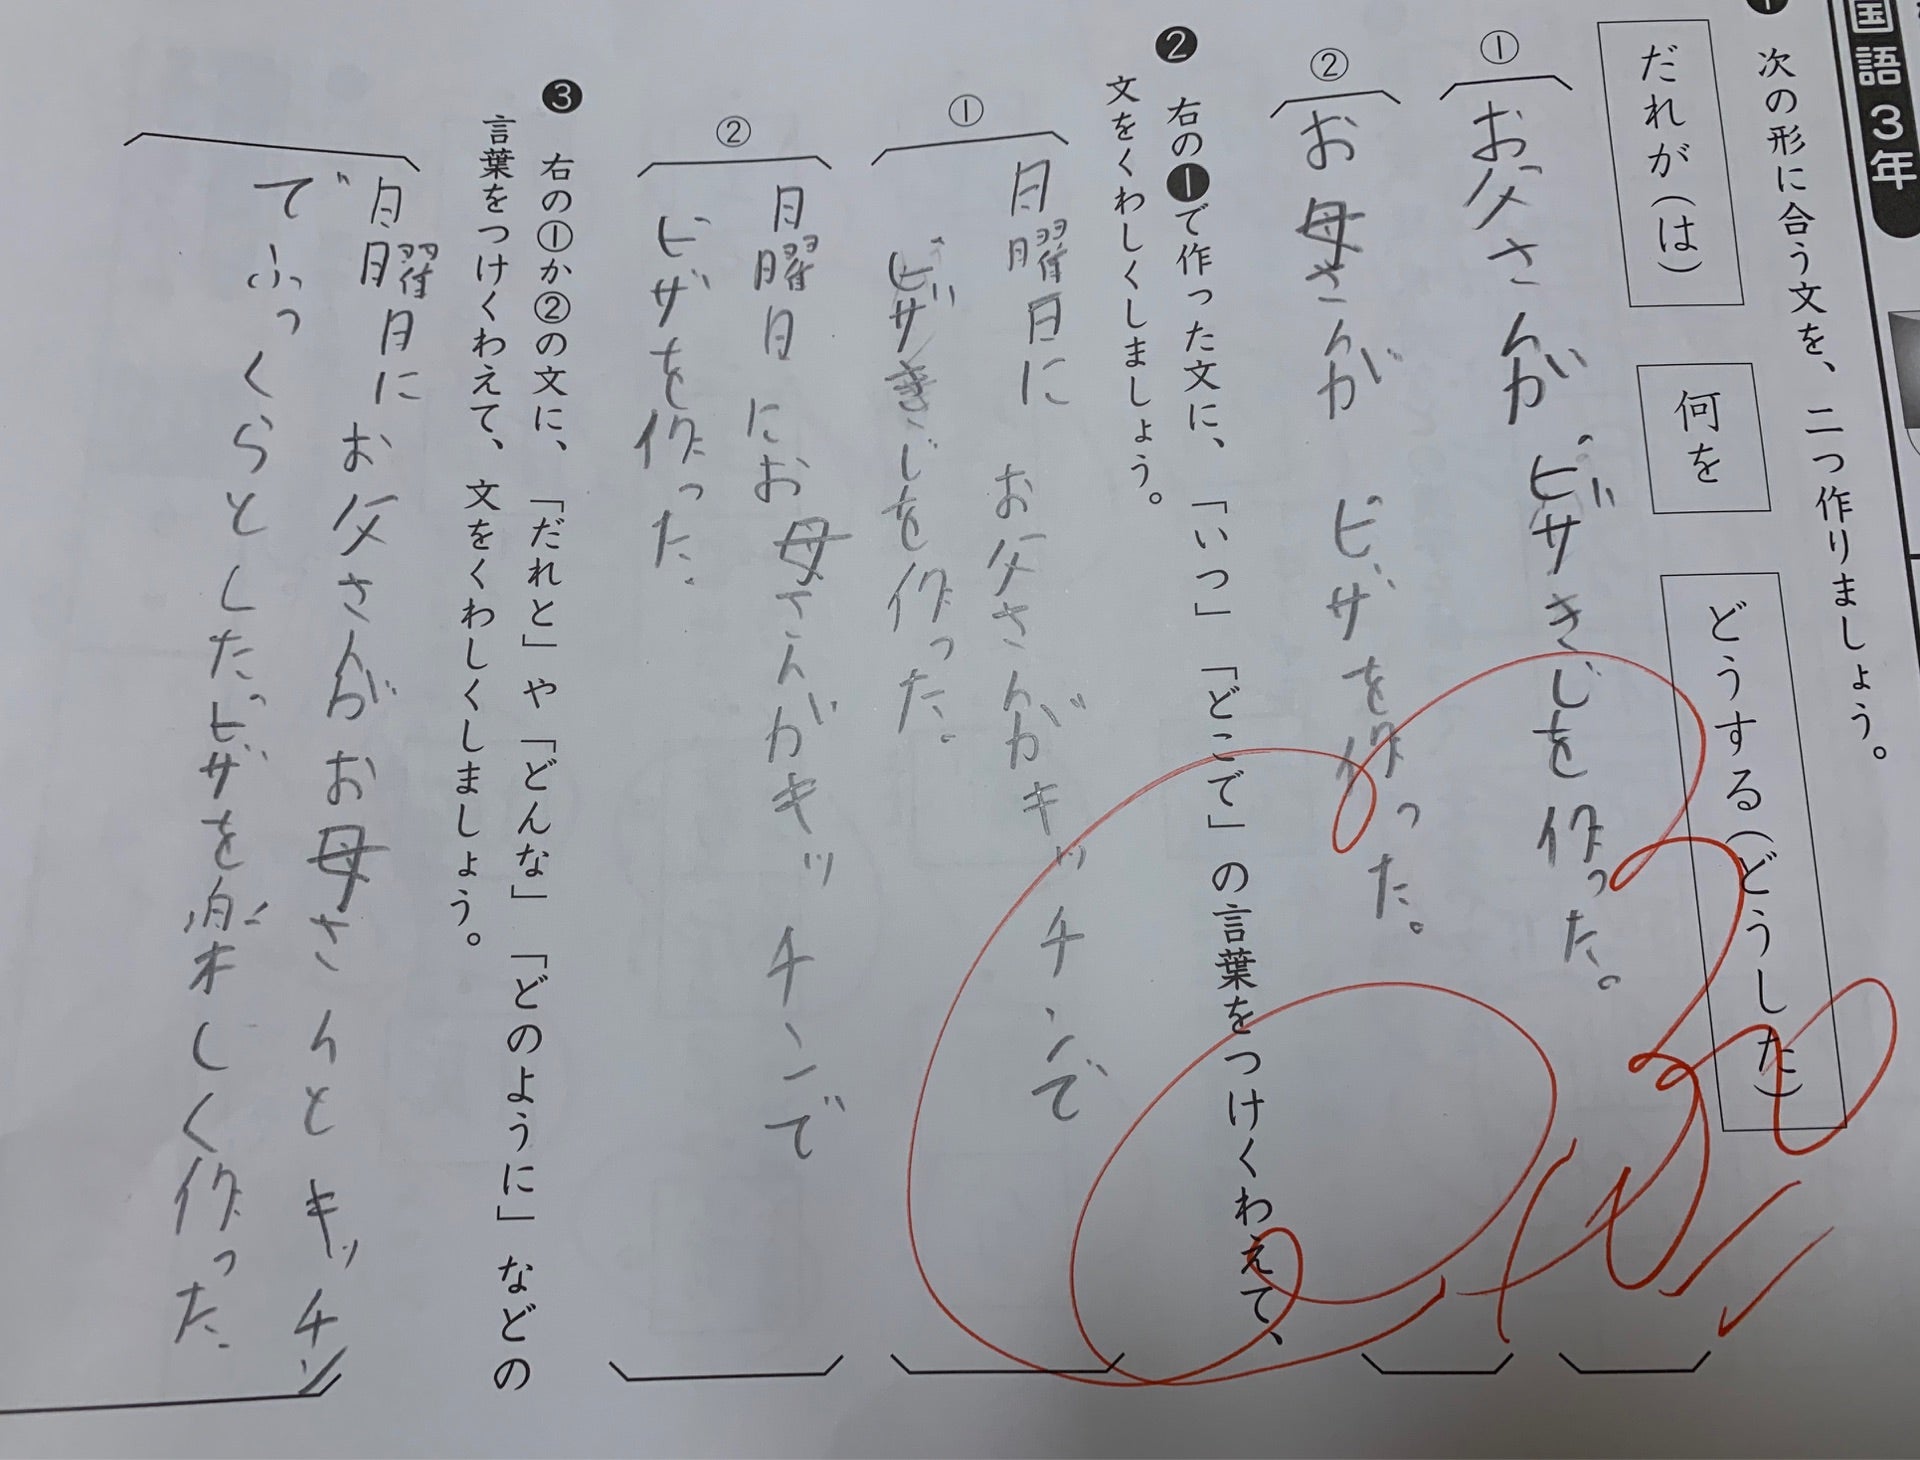 国語3年
次の形に合う文を、二つ作りましょう。
だれが(は)
何を
どうする(どうした)
①
お父さんがピザきじを作った。
②
お母さんがピザを作った。
❷ 右の❶で作った文に、「いつ」「どこで」の言葉をつけくわえて、
文をくわしくしましょう。
①
日曜日にお父さんがキッチンで
ピザきじを作った。
②
日曜日にお母さんがキッチンで
ピザを作った。
❸ 右の①か②の文に、「だれと」や「どんな」「どのように」などの
言葉をつけくわえて、文をくわしくしましょう。
日曜日にお父さんがお母さんとキッチン
でふっくらとしたピザを楽しく作った。